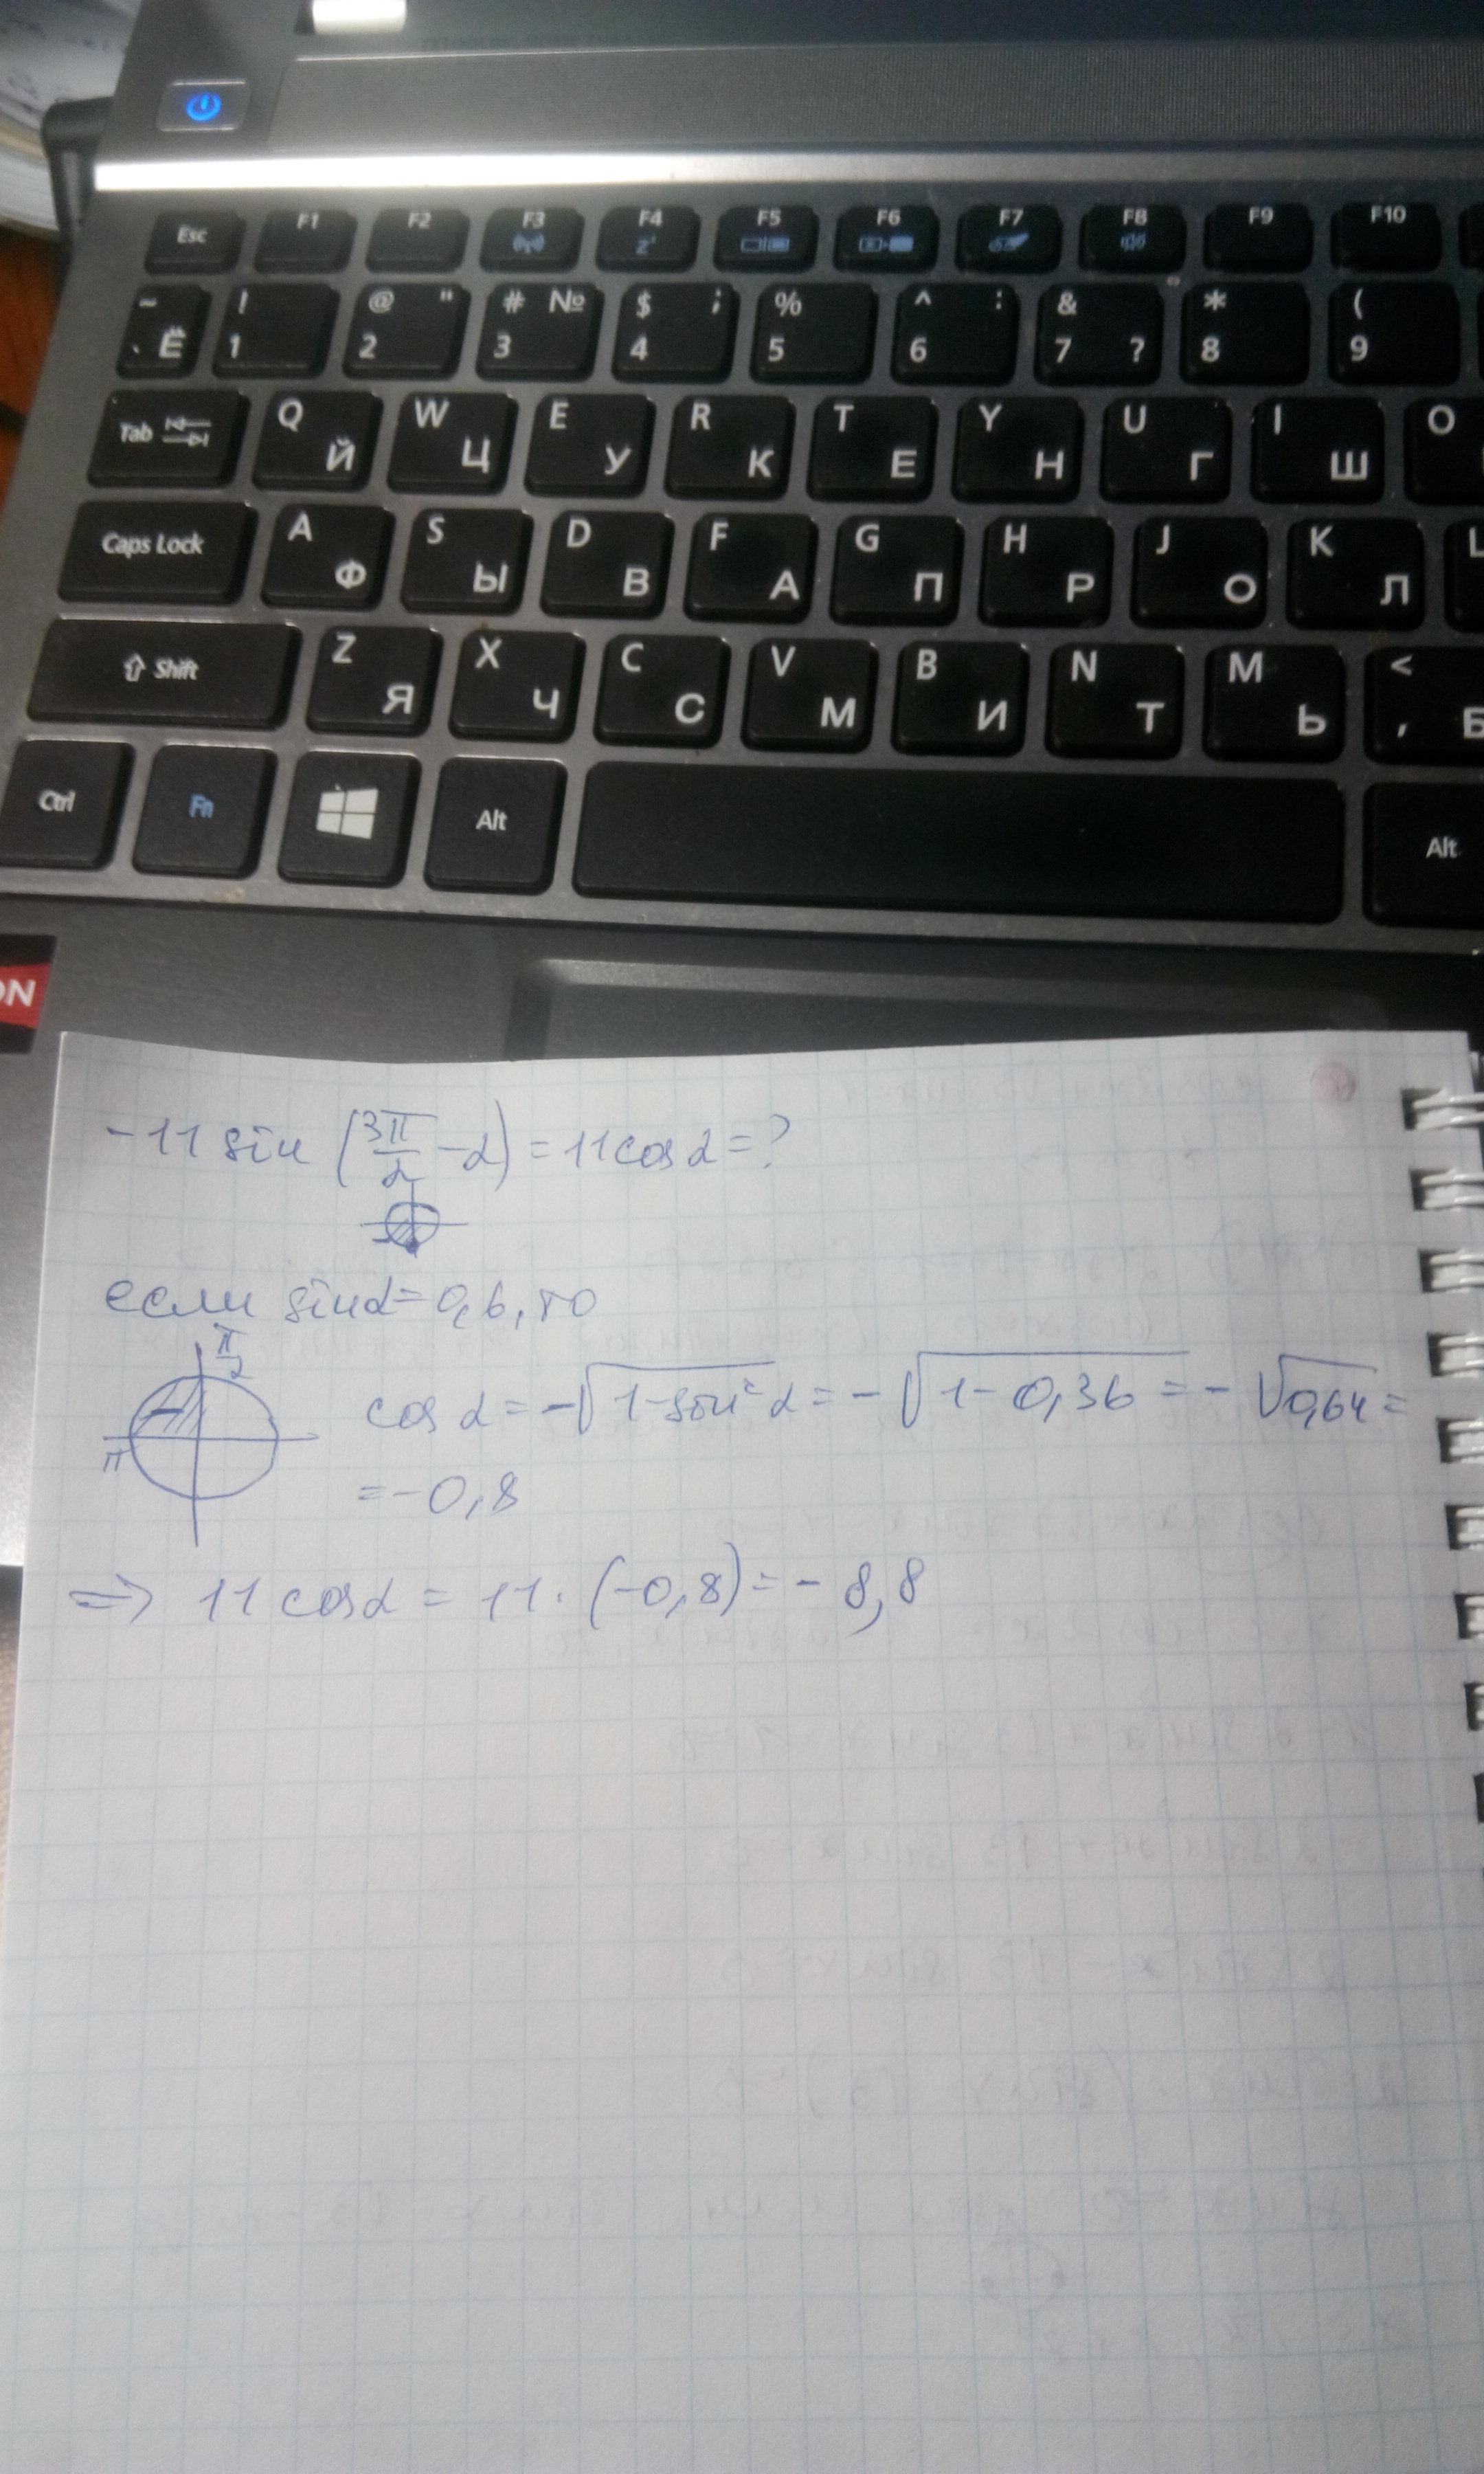 Esc F1 F2 F3 F4 zᶻ F5 F6 F7 F8 F9 F10
~ ` Ё ! 1 @ " 2 # № 3 $ ; 4 % 5 ^ : 6 & 7 ? * 8 ( 9
Tab Q Й W Ц E У R К T Е Y Н U Г I Ш O
Caps Lock A Ф S Ы D В F А G П H Р J О K Л L
Shift Z Я X Ч C С V М B И N Т M Ь < , Б
Ctrl Fn Alt Alt
ON
-11 sin (3π/2 - α) = 11 cos α = ?
если sin α = 0,6, то
π/2
π
cos α = -√(1-sin² α) = -√(1-0,36) = -√0,64 =
= -0,8
⇒ 11 cos α = 11 · (-0,8) = -8,8